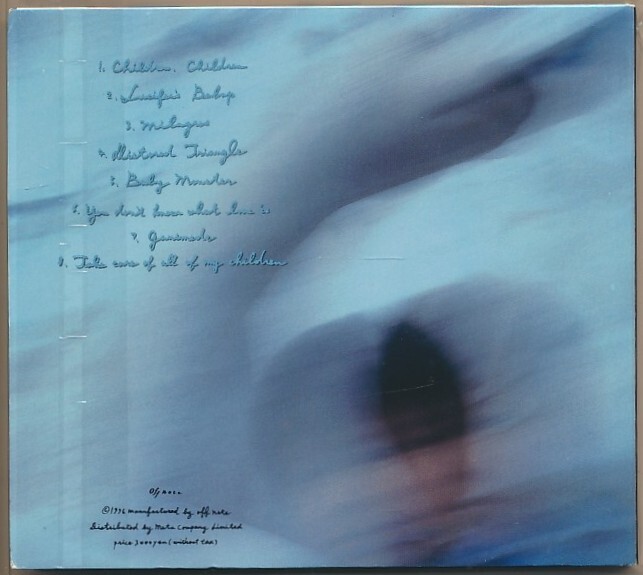 1. Children, Children
2. Lucifer's Babys
3. Milagros
4. Mistered Triangle
5. Baby Monster
6. You don't know what love is
7. Ganimede
8. Take care of all of my children
Off note
©1996 manufactured by off note
Distributed by Meta Company Limited
price 3000yen (without tax)